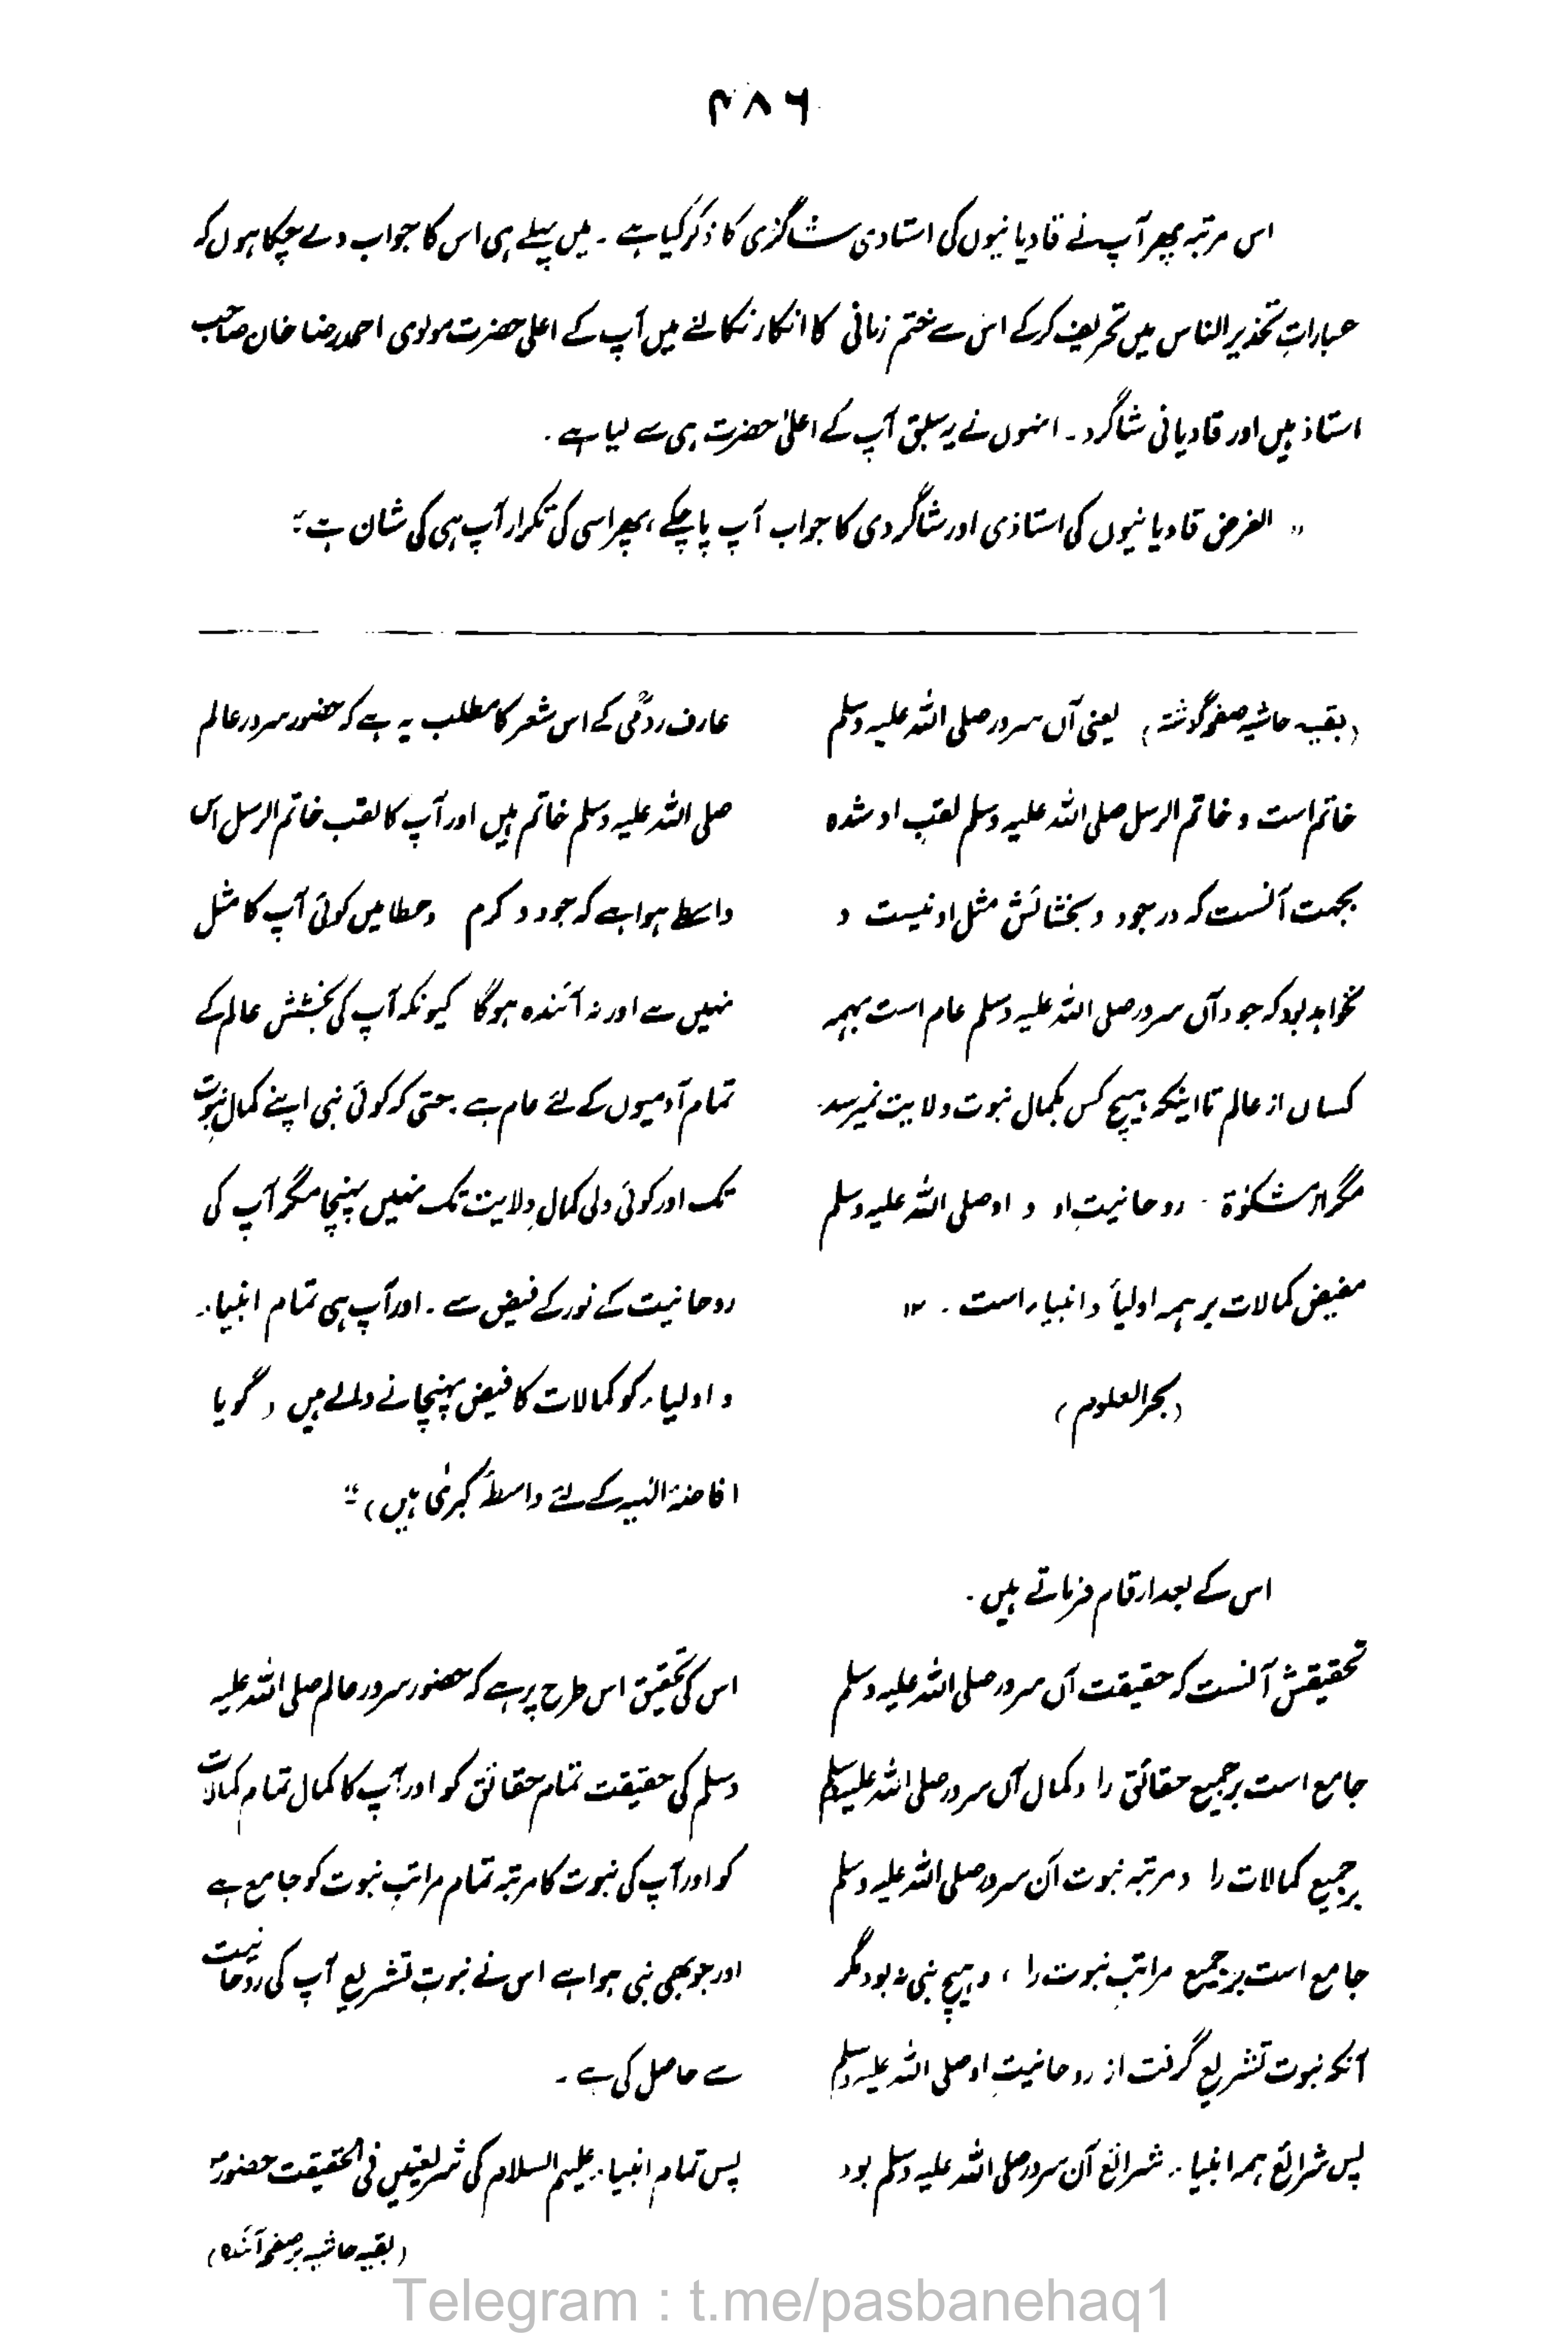 ۴۸۶
اس مرتبہ پھر آپ نے قادیانیوں کی استادی شاگردی کا ذکر کیا ہے ۔ میں پہلے ہی اس کا جواب دے چکا ہوں کہ
عباراتِ تحذیر الناس میں تحریف کرکے اس سے ختم زمانی کا انکار نکالنے میں آپ کے اعلیٰ حضرت مولوی احمد رضا خان صاحب
استاذ ہیں اور قادیانی شاگرد ۔ انہوں نے یہ سبق آپ کے اعلیٰ حضرت ہی سے لیا ہے ۔
" الغرض قادیانیوں کی استاذی اور شاگردی کا جواب آپ پاچکے ، پھر اسی کی تکرار آپ ہی کی شان ہے "
(بقیہ حاشیہ صفحہ گذشتہ) یعنی آں سرور صلی اللہ علیہ وسلم
خاتم است و خاتم الرسل صلی اللہ علیہ وسلم لقب او شدہ
بجہت آنست کہ در جود و بخشائش مثل او نیست و
نخواہد بود کہ جود آں سرور صلی اللہ علیہ وسلم عام است بہمہ
کساں از عالم تا اینکہ ہیچ کس بکمال نبوت و ولایت نمیرسد
مگر از مشکوٰۃ روحانیتِ او و او صلی اللہ علیہ وسلم
مفیض کمالات بر ہمہ اولیأ و انبیاء است ۔ ۱۲
(بحر العلوم)
عارف رومیؒ کے اس شعر کا مطلب یہ ہے کہ حضور سرور عالم
صلی اللہ علیہ وسلم خاتم ہیں اور آپ کا لقب خاتم الرسل اس
واسطے ہوا ہے کہ جود و کرم وعطا میں کوئی آپ کا مثل
نہیں ہے اور نہ آئندہ ہوگا کیونکہ آپ کی بخشش عالم کے
تمام آدمیوں کے لئے عام ہے ۔ حتی کہ کوئی نبی اپنے کمال نبوت
تک اور کوئی ولی کمالِ ولایت تک نہیں پہنچا مگر آپ کی
روحانیت کے نور کے فیض سے ۔ اور آپ ہی تمام انبیاء
و اولیاء کو کمالات کا فیض پہنچانے والے ہیں (گویا
افاضۂ الٰہیہ کے لئے واسطۂ کبریٰ ہیں) "
اس کے بعد ارقام فرماتے ہیں ۔
تحقیقش آنست کہ حقیقت آں سرور صلی اللہ علیہ وسلم
جامع است بر جمیع حقائق را و کمال آں سرور صلی اللہ علیہ وسلم
بر جمیع کمالات را و مرتبہ نبوت آن سرور صلی اللہ علیہ وسلم
جامع است بر جمیع مراتبِ نبوت را ، و ہیچ نبی نہ بود مگر
آنکہ نبوت تشریع گرفت از روحانیتِ او صلی اللہ علیہ وسلم
پس شرائع ہمہ انبیاء شرائع آن سرور صلی اللہ علیہ وسلم بود
اس کی تحقیق اس طرح پر ہے کہ حضور سرور عالم صلی اللہ علیہ
وسلم کی حقیقت تمام حقائق کو اور آپ کا کمال تمام کمالات
کو اور آپ کی نبوت کا مرتبہ تمام مراتبِ نبوت کو جامع ہے
اور جو بھی نبی ہوا ہے اس نے نبوتِ تشریع آپ کی روحانیت
سے حاصل کی ہے ۔
پس تمام انبیاء علیہم السلام کی شریعتیں فی الحقیقت حضورؐ
(بقیہ حاشیہ بر صفحہ آئندہ)
Telegram : t.me/pasbanehaq1